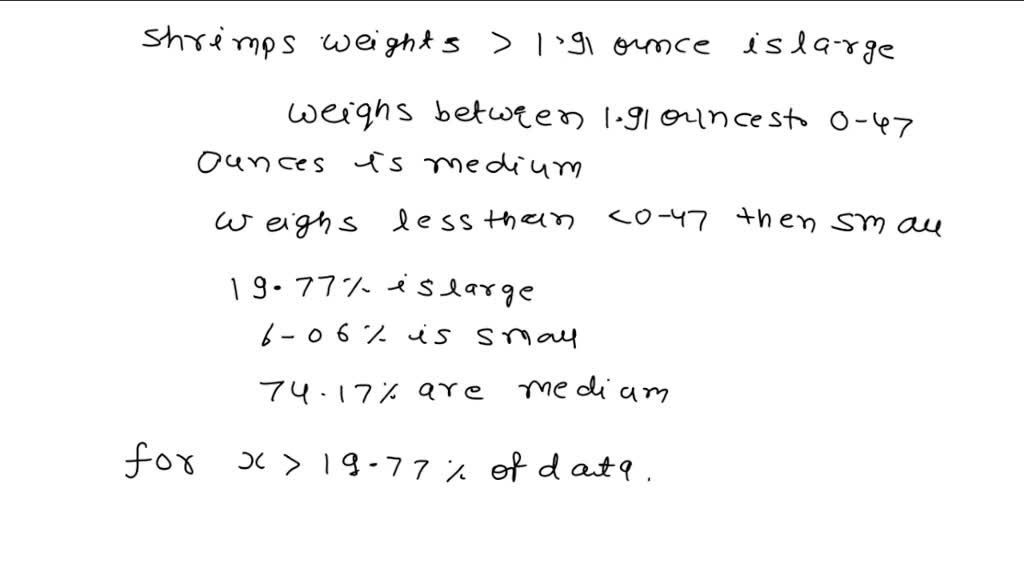 shrimps weights > 1.91 ounce is large
weighs between 1.91 ouncesto 0-47
ounces is medium
weighs less than <0-47 then small
19.77% is large
6-06% is small
74.17% are medium
for x > 19.77% of data.